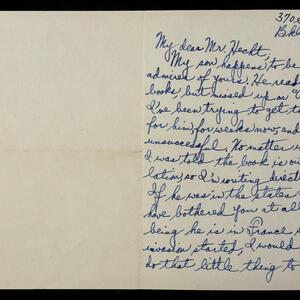 370
My dear Mr. Hecht,
My son happens to be
admirer of yours. He read
books, but missed up on
I've been trying to get t
for him, for weeks now, and
unsuccessful. No matter w
I was told the book is ou
lation, so I'm writing direct
If he was in the states
have bothered you at all
being he is in France s
invasion started, I would
do that little thing to